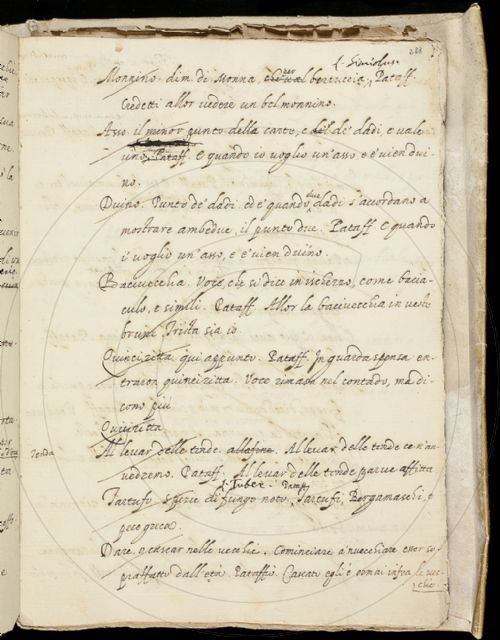 288
l. Simiolus.
Monnino. dim. di Monna, per bertuccia, Pataff.
Credetti allor vedere un bel monnino.
Asso. il minor punto delle carte, e de' dadi, e vale
uno. Pataff. E quando io voglio un'asso, e e' vien dui-
no.
Duino. Punto de' dadi. ed e' quando due dadi s'accordano a
mostrare ambedue, il punto due. Pataff. E quando
i' voglio un'asso, e e' vien duino.
Bacivecchia. Voce, che si dice in ischerzo, come bacia-
culo, e simili. Pataff. Allor la bacivecchia in
bruna Trista sia io.
Quinciritta qui appunto. Pataff. In guarda spensa en-
traron quinciritta. Voce rimasa nel contado, ma di-
cono più
Quiritta
Tenda
Al levar delle tende. allafine. Al levar delle tende ce n'av-
vedremo. Pataff. Al levar delle tende parve afflitta
l. Tuber.
Tartufo. Spezie di fungo noto. Tartufi, Bergamaschi, e
Dare, o cascar nelle vecchie. Cominciare a'nvecchiare esser so-
praffatto dall'età. Pataffio. Cascato egli è ormai infra le vec-
chie.